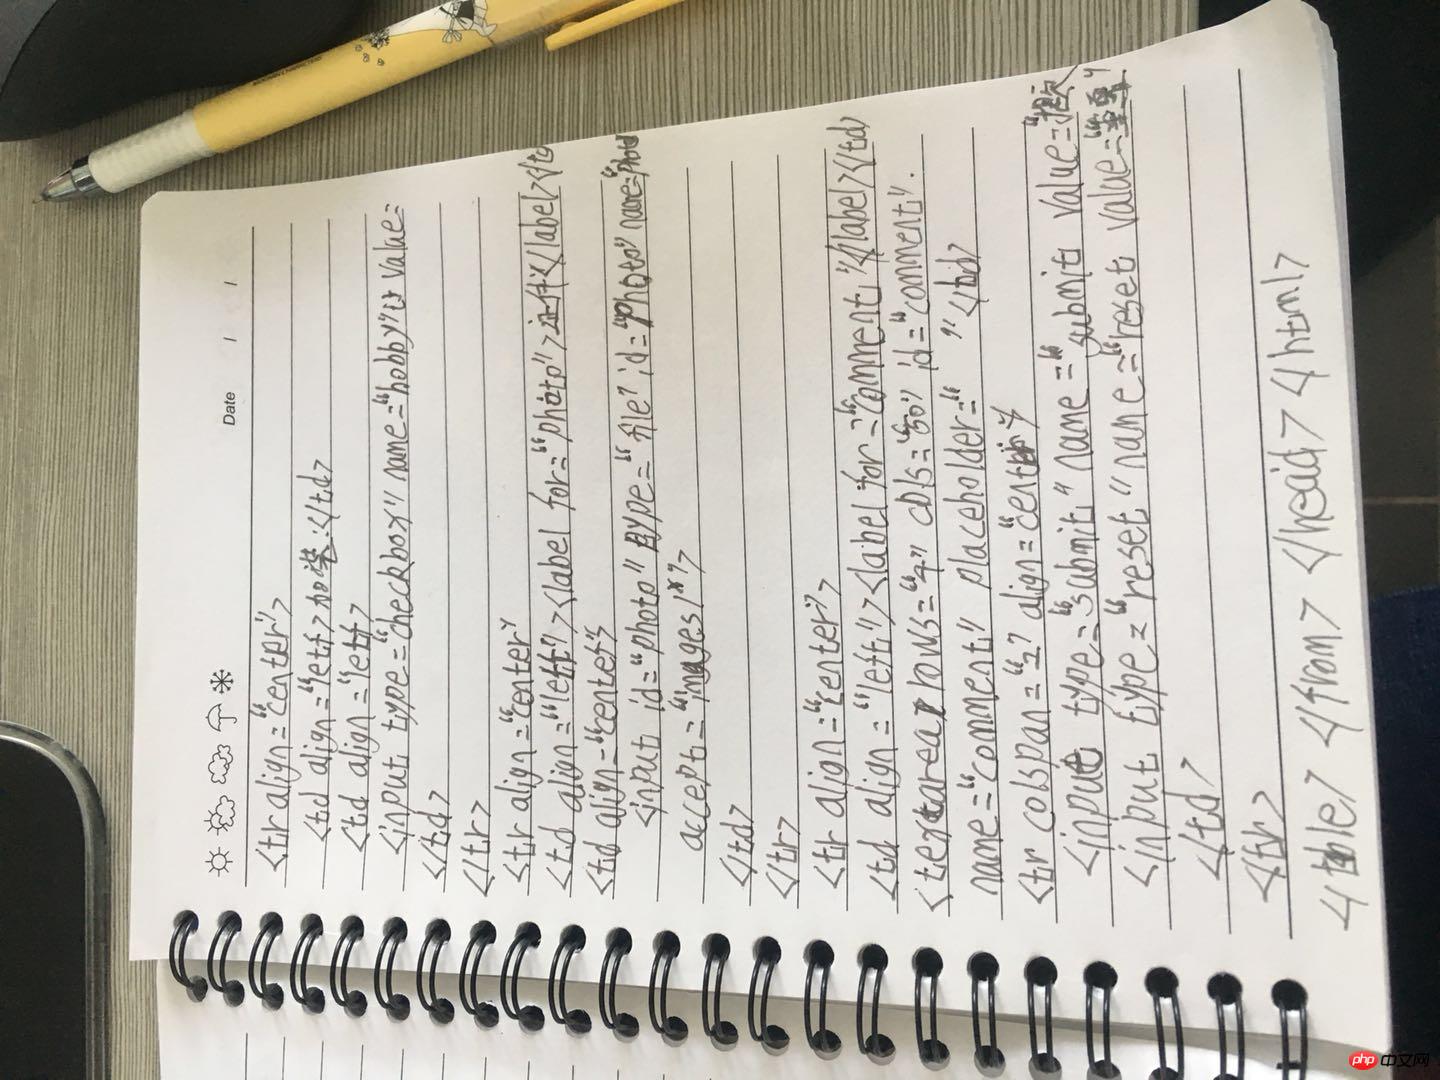 Date / /
<tr align="center">
<td align="left>加棠:</td>
<td align="left>
<input type="checkbox" name="hobby" value=
</td>
</tr>
<tr align="center"
<td align="left"><label for="photo">证件<</label></td
<td align="center">
<input id="photo" type="file" id="photo" name="photo
accept="images/*">
</td>
</tr>
<tr align="center">
<td align="left"><label for="comment"</label></td>
<textarea rows="4" cols="50" id="comment".
name="comment" placeholder=" "</td>
<tr colspan="2" align="center"
<input type="submit" name="submit value="提交
<input type="reset" name="reset value="
</td>
</tr>
</table> </from> </head> </html>
php 中文网